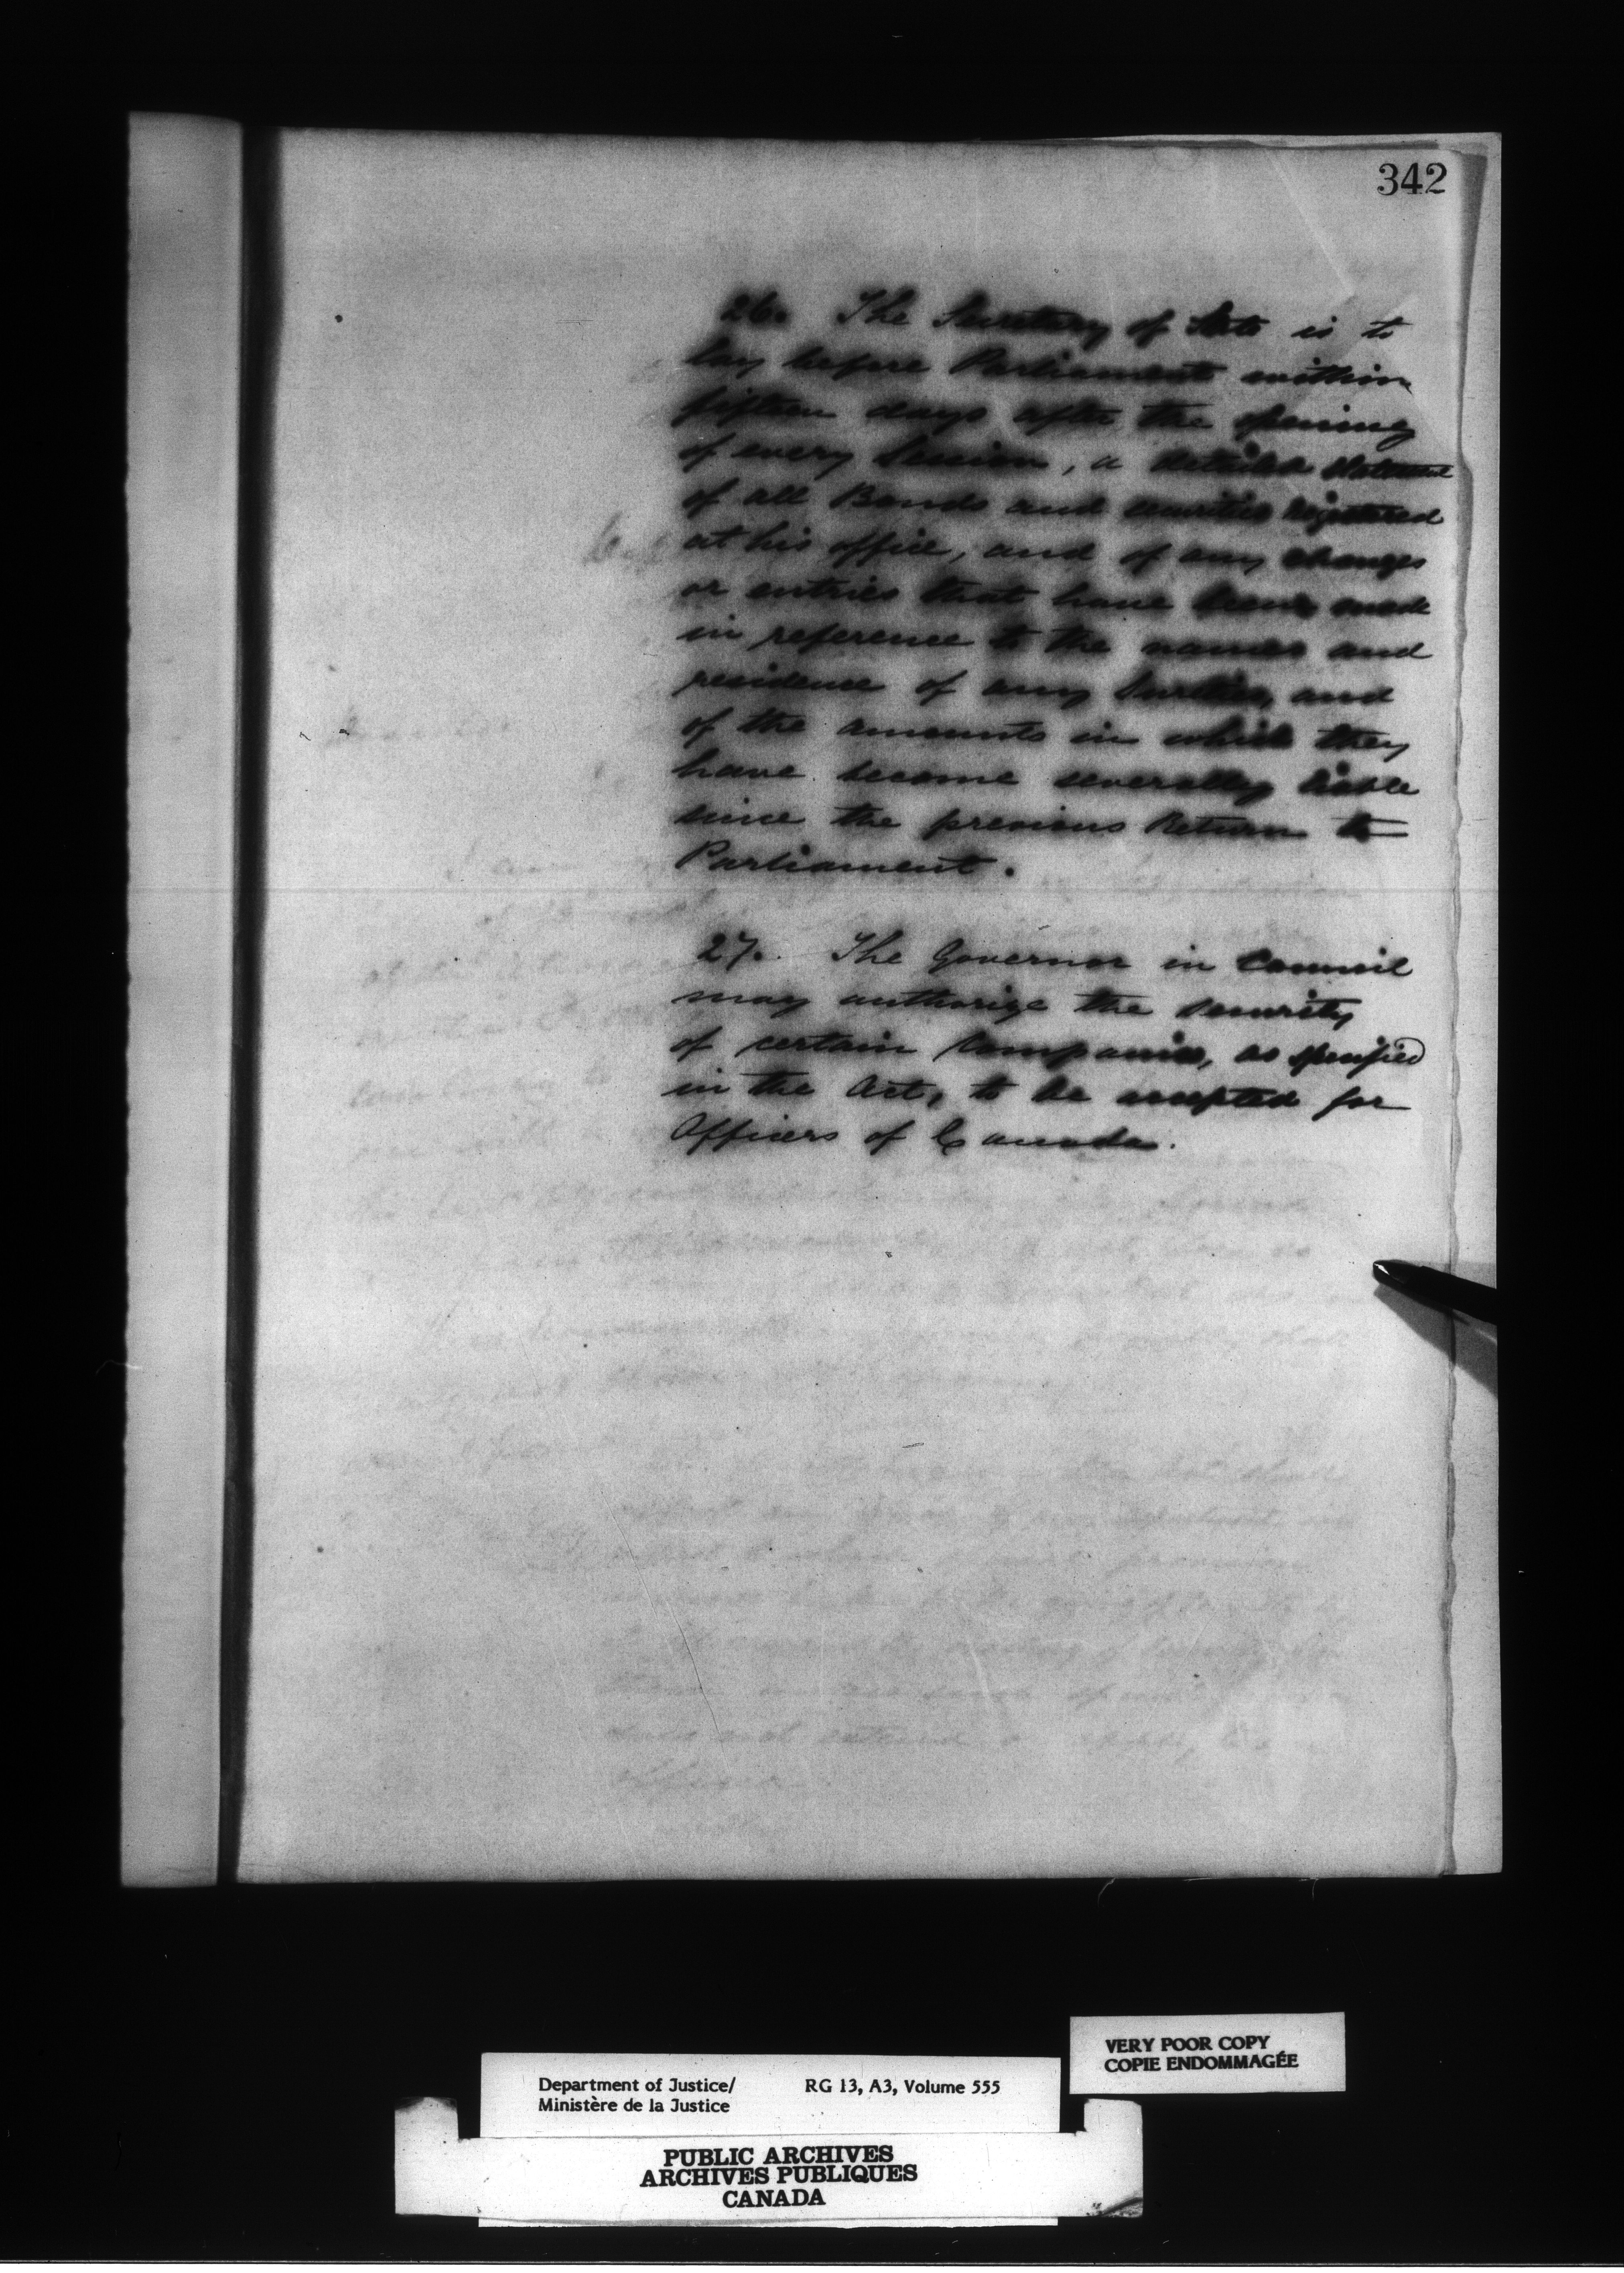 342
26. The Secretary of State is to
lay before Parliament within
fifteen days after the opening
of every Session, a detailed Statement
of all Bonds and securities registered
at his office, and of any changes
or entries that have been made
in reference to the names and
residence of any Sureties, and
of the amounts in which they
have become severally liable
since the previous Return to
Parliament.
27. The Governor in Council
may authorize the security
of certain Companies, as specified
in the Act, to be accepted for
Officers of Canada.
VERY POOR COPY
COPIE ENDOMMAGÉE
Department of Justice/ RG 13, A3, Volume 555
Ministère de la Justice
PUBLIC ARCHIVES
ARCHIVES PUBLIQUES
CANADA